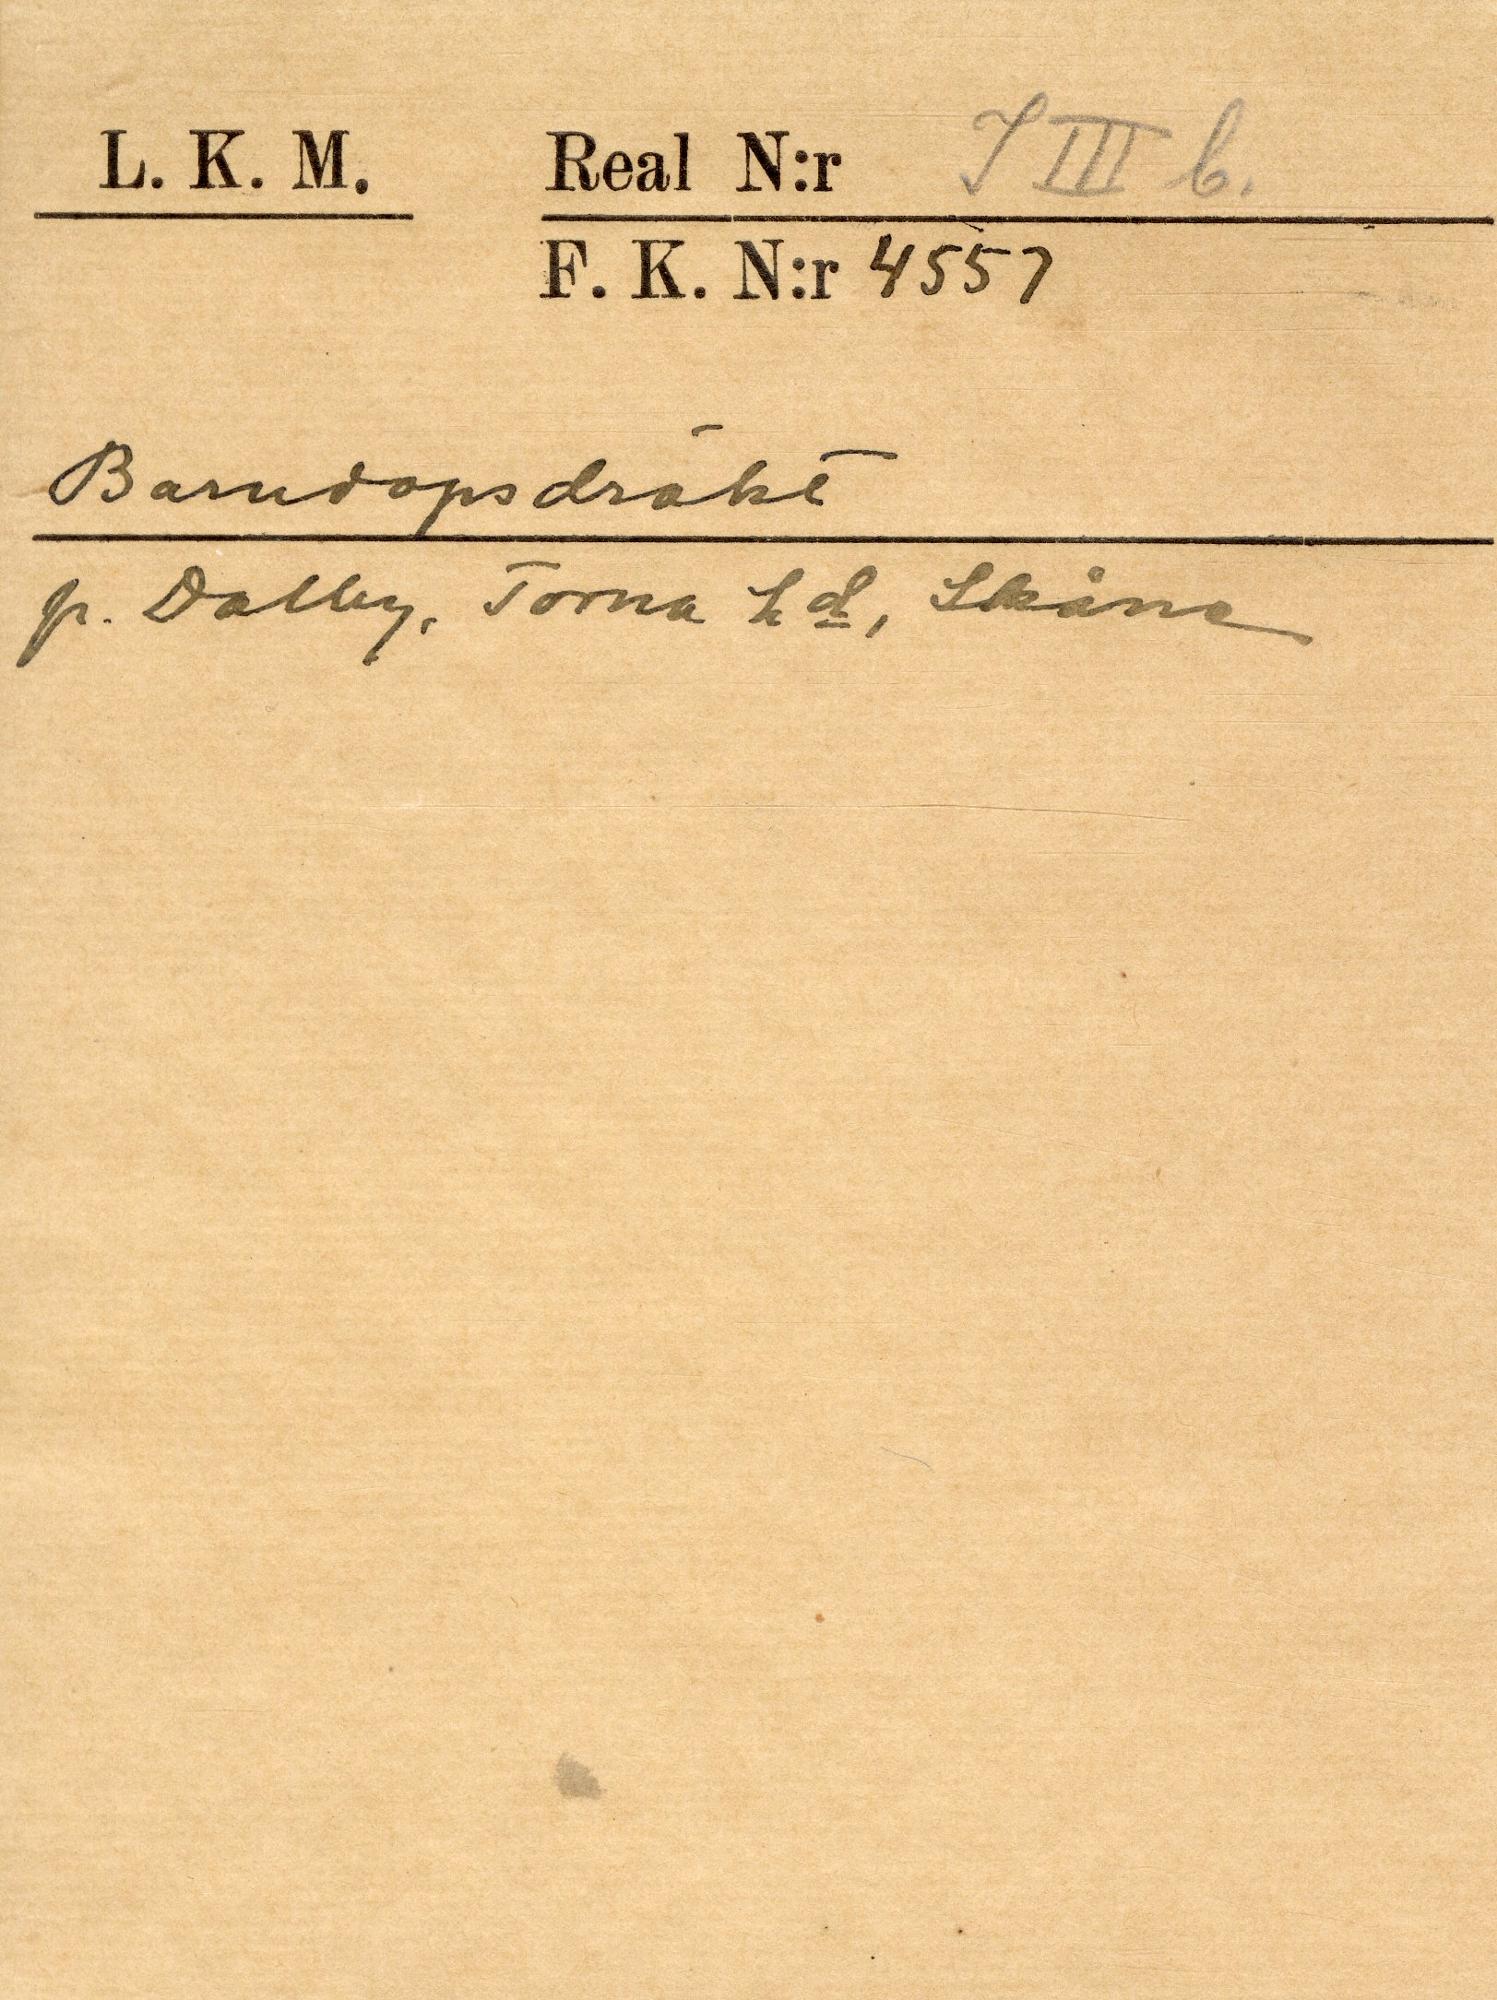 L. K. M. Real N:r I III b.
F. K. N:r 4557
Barndopsdräkt
p. Dalby, Torna hd, Skåne